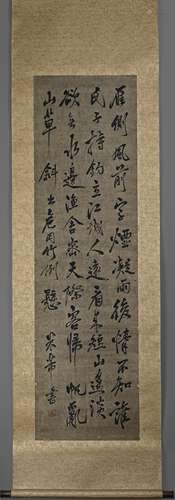 雁側風前字煙凝雨後情不知誰
氏子持釣立江
人遠看來短山遙淡
欲無水邊漁舍密天際客帰帆亂
山草斜出危用竹倒懸
米芾書